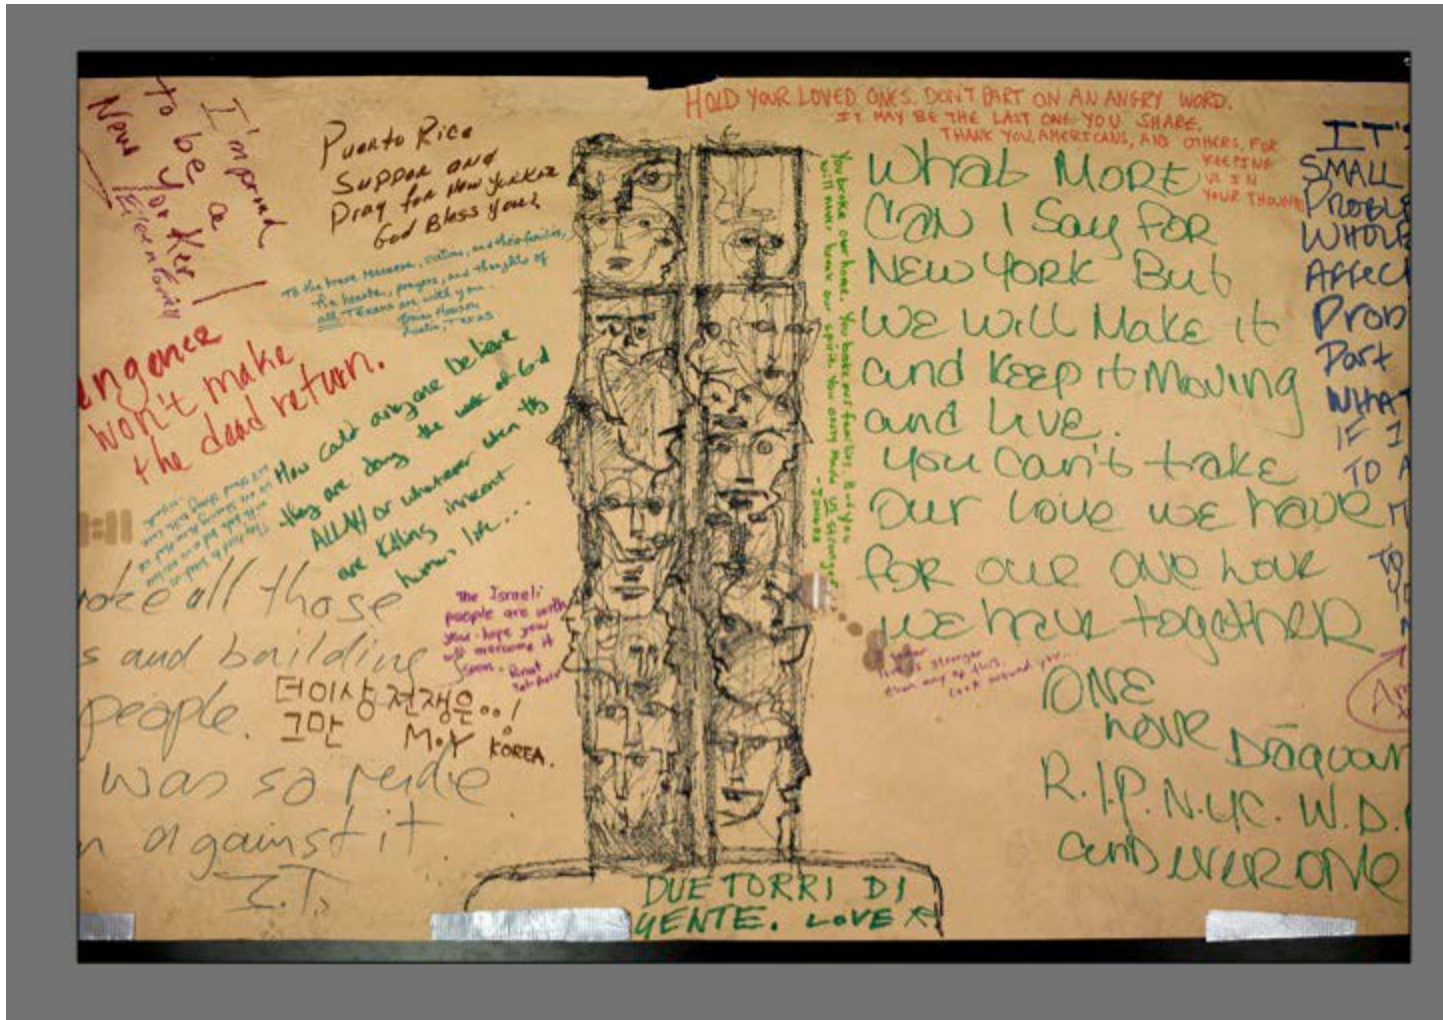 I'm proud
to be a
New Yorker!
Puerto Rico
Suppor and
Pray for New Yorker
God Bless You!
To the brave Rescuers, victims, and their families,
The hearts, prayers, and thoughts of
all Texans are with you.
Austin, Texas
won't make
the dead return.
How could anyone believe
they are doing the work of G-d
ALLAH or whatever when they
are killing innocent
human life...
all those
and buildings
people.
was so rude
against it.
I.T.
The Israeli
people are with
you - hope you
will overcome it
soon -
더이상 전쟁은..!
그만 M.Y KOREA.
HOLD YOUR LOVED ONES. DON'T PART ON AN ANGRY WORD.
IT MAY BE THE LAST ONE YOU SHARE.
THANK YOU, AMERICANS, AND OTHERS, FOR
KEEPING
US IN
YOUR THOUGHTS
You broke our homes. You broke our families. But you
will never break our spirit. You only made us stronger
What MORE
CAN I Say FOR
NEW YORK But
WE Will Make it
and KEEP it Moving
and Live.
you can't take
Our Love we have
for our one love
we have together
ONE
LOVE Daquan
R.I.P. N.Y.C. W.D.
stronger
than any of this.
Look around you...
IT'S
SMALL
WHOLE
Part
WHAT
IF I
TO
DUE TORRI DI
GENTE. LOVE